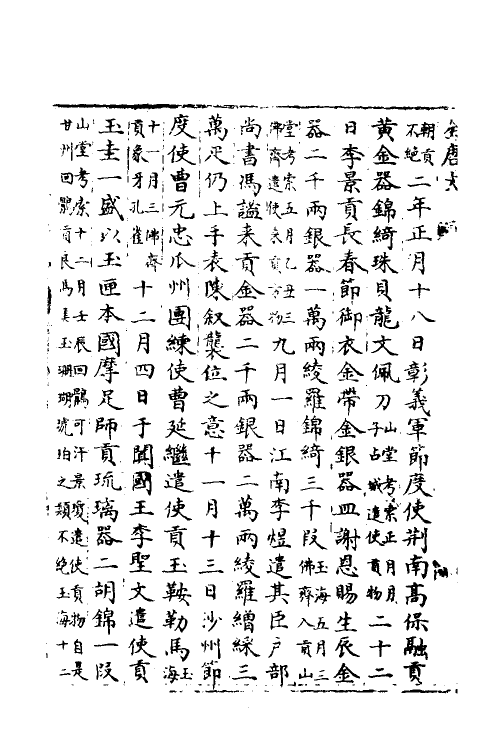 全唐文
朝貢不絕二年正月十八日彰義軍節度使荆南髙保融貢
黃金器錦綺珠貝龍文佩刀山堂考索正月月子占城遣使貢物二十二
日李景貢長春節御衣金帶金銀器皿謝恩賜生辰金
器二千兩銀器一萬兩綾羅錦綺三千段玉海五月三佛齊入貢山
堂考索五月乙丑三佛齊遣使來貢方物九月一日江南李煜遣其臣户部
尚書馮謐来貢金器二千兩銀器二萬兩綾羅繒綵三
萬疋仍上手表陳叙襲位之意十一月十三日沙州節
度使曹元忠瓜州團練使曹延繼遣使貢玉鞍勒馬玉海
十一月三佛齊貢象牙孔雀十二月四日于闐國王李聖文遣使貢
玉圭一盛以玉匣本國摩足師貢琉璃器二胡錦一段
山堂考索十二月壬辰回鶻可汗景瓊遣使貢物自是甘州回鶻貢良馬美玉珊瑚琥珀之類不絕玉海十二